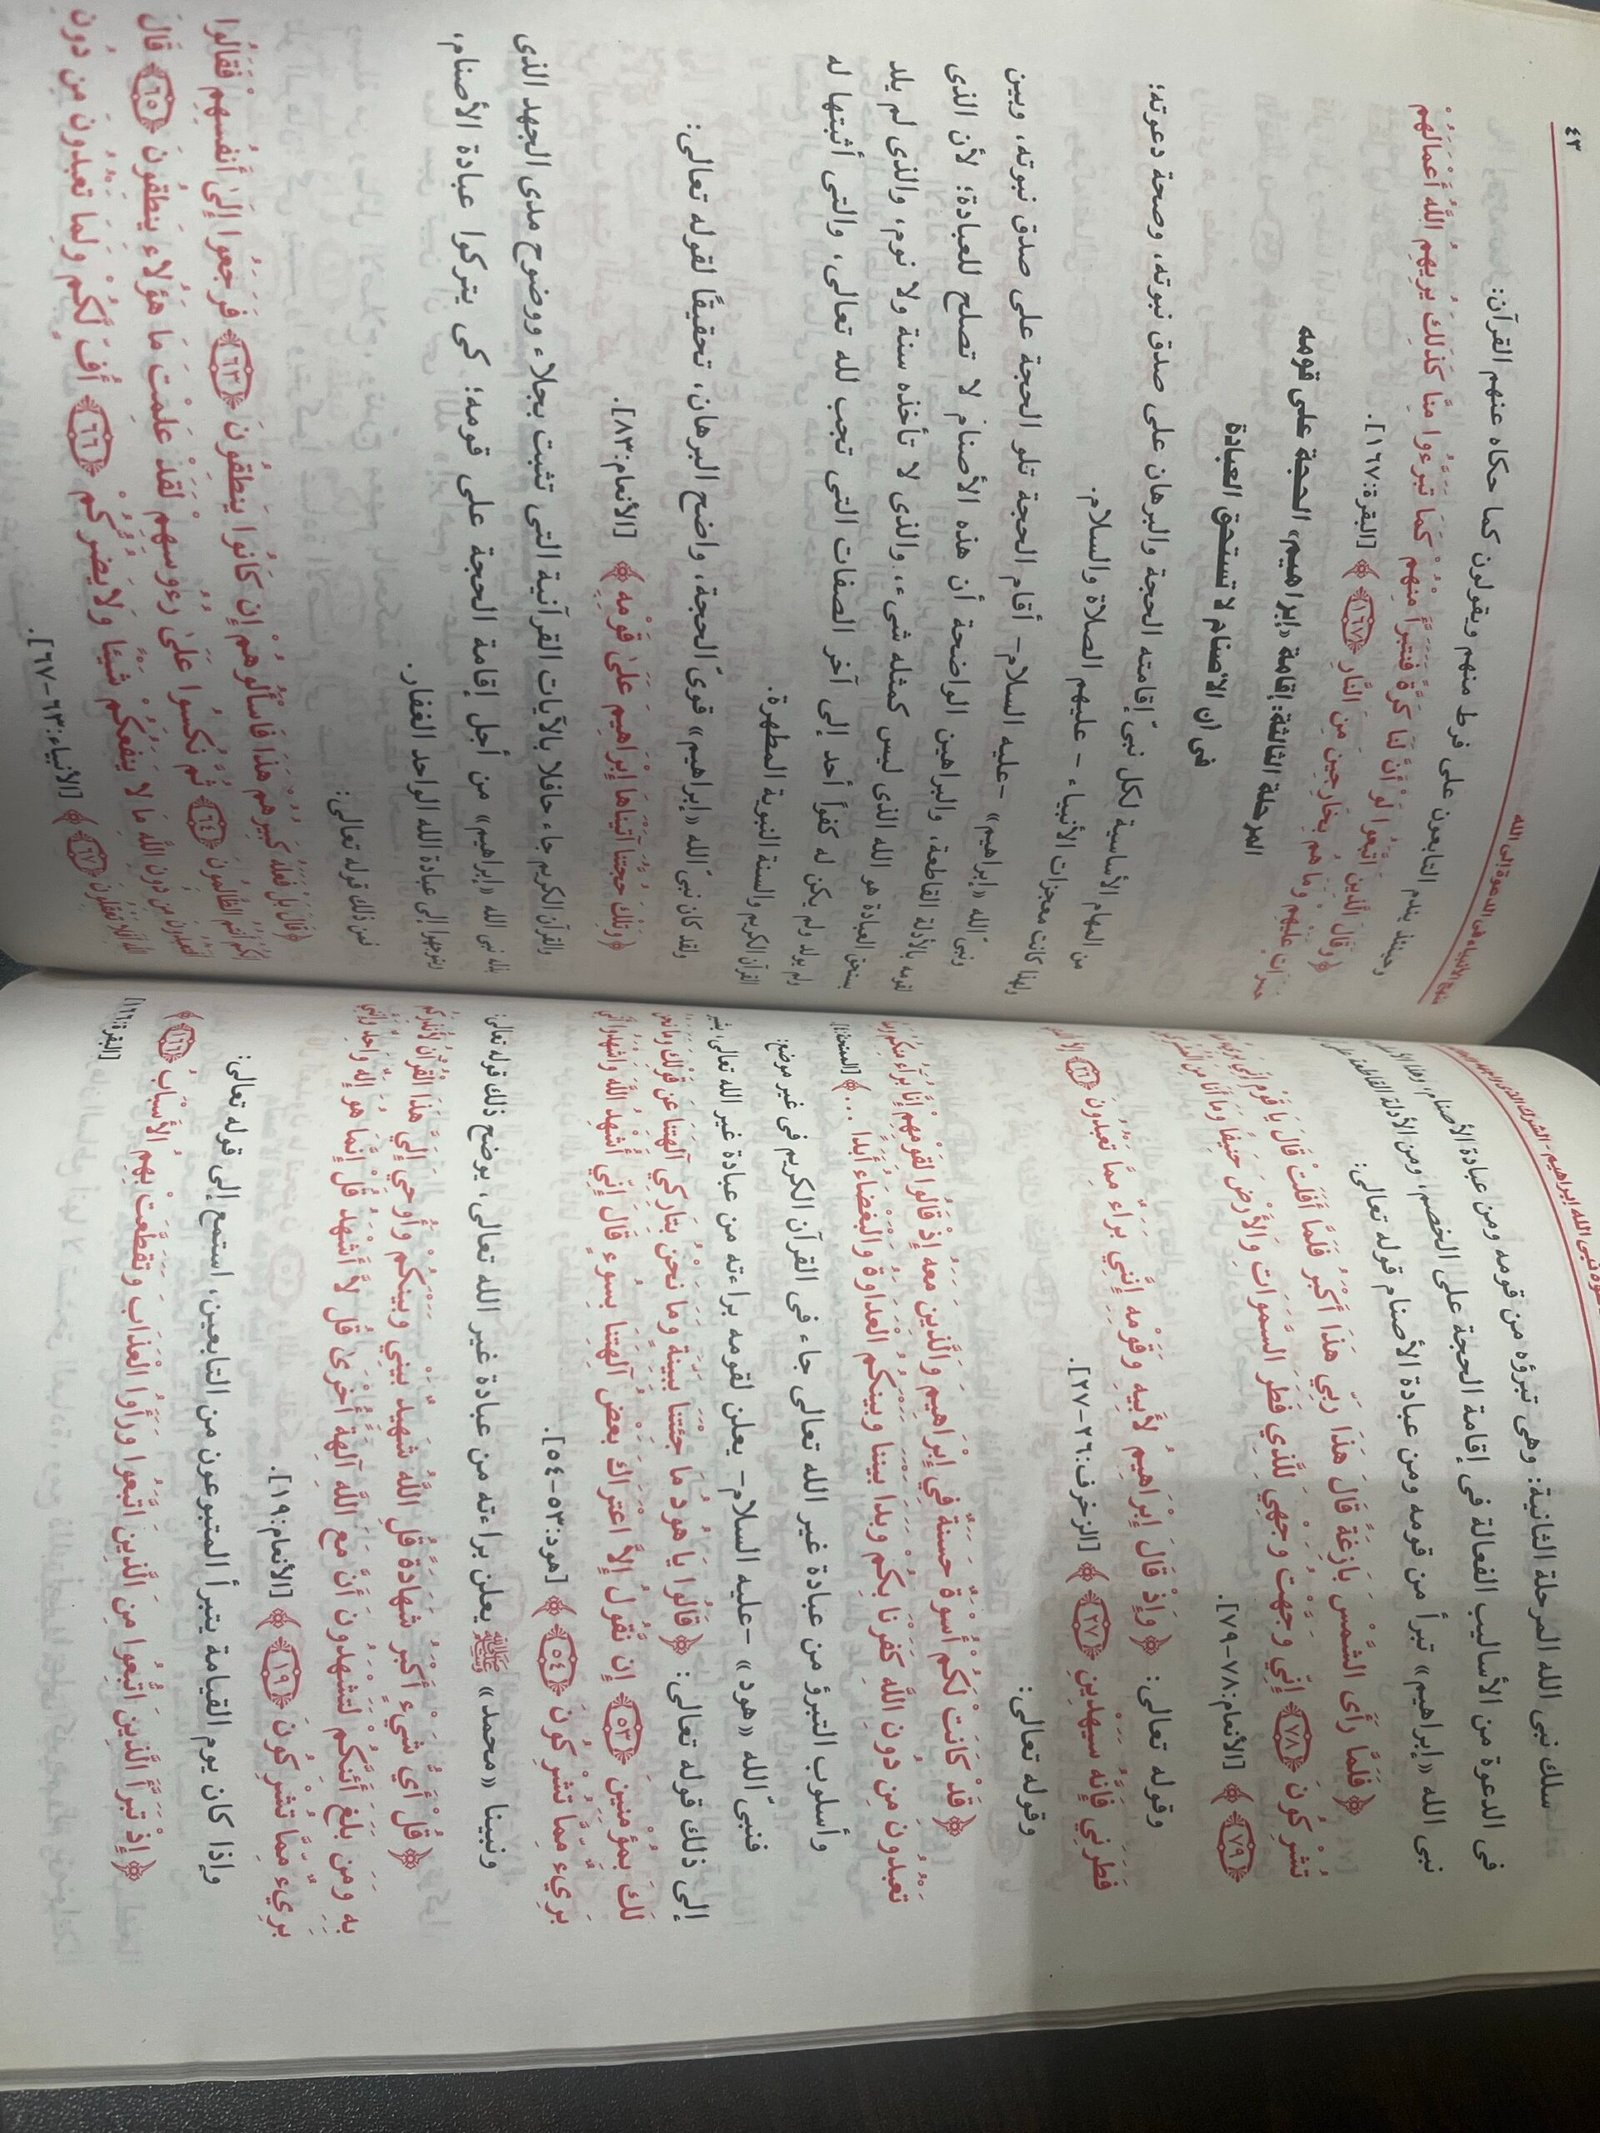 سلك نبى الله المرحلة الثانية: وهى تبرؤه من قومه ومن عبادة الأصنام، وهذا
فى الدعوة من الأساليب الفعالة فى إقامة الحجة على الخصم، ومن الأدلة القاطعة على
نبى الله «إبراهيم» تبرأ من قومه ومن عبادة الأصنام قوله تعالى:
﴿ فَلَمَّا رَأَى الشَّمْسَ بَازِغَةً قَالَ هَذَا رَبِّي هَذَا أَكْبَرُ فَلَمَّا أَفَلَتْ قَالَ يَا قَوْمِ إِنِّي بَرِيءٌ مِّمَّا
تُشْرِكُونَ ﴿٧٨﴾ إِنِّي وَجَّهْتُ وَجْهِيَ لِلَّذِي فَطَرَ السَّمَوَاتِ وَالأَرْضَ حَنِيفًا وَمَا أَنَا مِنَ الْمُشْرِكِينَ
﴿٧٩﴾ ﴾ [الأنعام:٧٨-٧٩].
وقوله تعالى: ﴿ وَإِذْ قَالَ إِبْرَاهِيمُ لأَبِيهِ وَقَوْمِهِ إِنَّنِي بَرَاءٌ مِّمَّا تَعْبُدُونَ ﴿٢٦﴾ إِلاَّ الَّذِي
فَطَرَنِي فَإِنَّهُ سَيَهْدِينِ ﴿٢٧﴾ ﴾ [الزخرف:٢٦-٢٧].
وقوله تعالى:
﴿ قَدْ كَانَتْ لَكُمْ أُسْوَةٌ حَسَنَةٌ فِي إِبْرَاهِيمَ وَالَّذِينَ مَعَهُ إِذْ قَالُوا لِقَوْمِهِمْ إِنَّا بُرَآءُ مِنكُمْ وَمِمَّا
تَعْبُدُونَ مِن دُونِ اللَّهِ كَفَرْنَا بِكُمْ وَبَدَا بَيْنَنَا وَبَيْنَكُمُ الْعَدَاوَةُ وَالْبَغْضَاءُ أَبَدًا ... ﴾ [الممتحنة:٤].
وأسلوب التبرؤ من عبادة غير الله تعالى جاء فى القرآن الكريم فى غير موضع:
فنبىّ الله «هود» -عليه السلام- يعلن لقومه براءته من عبادة غير الله تعالى، يشير
إلى ذلك قوله تعالى: ﴿ قَالُوا يَا هُودُ مَا جِئْتَنَا بِبَيِّنَةٍ وَمَا نَحْنُ بِتَارِكِي آلِهَتِنَا عَن قَوْلِكَ وَمَا نَحْنُ
لَكَ بِمُؤْمِنِينَ ﴿٥٣﴾ إِن نَّقُولُ إِلاَّ اعْتَرَاكَ بَعْضُ آلِهَتِنَا بِسُوءٍ قَالَ إِنِّي أُشْهِدُ اللَّهَ وَاشْهَدُوا أَنِّي
بَرِيءٌ مِّمَّا تُشْرِكُونَ ﴿٥٤﴾ ﴾ [هود:٥٣-٥٤].
ونبينا «محمد» ﷺ يعلن براءته من عبادة غير الله تعالى، يوضح ذلك قوله تعالى:
﴿ قُلْ أَيُّ شَيْءٍ أَكْبَرُ شَهَادَةً قُلِ اللَّهُ شَهِيدٌ بَيْنِي وَبَيْنَكُمْ وَأُوحِيَ إِلَيَّ هَذَا الْقُرْآنُ لأُنذِرَكُم
بِهِ وَمَن بَلَغَ أَئِنَّكُمْ لَتَشْهَدُونَ أَنَّ مَعَ اللَّهِ آلِهَةً أُخْرَىٰ قُل لاَّ أَشْهَدُ قُلْ إِنَّمَا هُوَ إِلَهٌ وَاحِدٌ وَإِنَّنِي
بَرِيءٌ مِّمَّا تُشْرِكُونَ ﴿١٩﴾ ﴾ [الأنعام:١٩].
وإذا كان يوم القيامة يتبرأ المتبوعون من التابعين، استمع إلى قوله تعالى:
﴿ إِذْ تَبَرَّأَ الَّذِينَ اتُّبِعُوا مِنَ الَّذِينَ اتَّبَعُوا وَرَأَوُا الْعَذَابَ وَتَقَطَّعَتْ بِهِمُ الأَسْبَابُ ﴿١٦٦﴾ ﴾
[البقرة:١٦٦]
منهج الأنبياء فى الدعوة إلى الله
٤٣
وحينئذ يندم التابعون على فرط منهم ويقولون كما حكاه عنهم القرآن:
﴿ وَقَالَ الَّذِينَ اتَّبَعُوا لَوْ أَنَّ لَنَا كَرَّةً فَنَتَبَرَّأَ مِنْهُمْ كَمَا تَبَرَّءُوا مِنَّا كَذَلِكَ يُرِيهِمُ اللَّهُ أَعْمَالَهُمْ
حَسَرَاتٍ عَلَيْهِمْ وَمَا هُم بِخَارِجِينَ مِنَ النَّارِ ﴿١٦٧﴾ ﴾ [البقرة:١٦٧].
المرحلة الثالثة: إقامة «إبراهيم» الحجة على قومه
فى أن الأصنام لا تستحق العبادة
من المهام الأساسية لكل نبىّ إقامته الحجة والبرهان على صدق نبوته، وصحة دعوته؛
ولهذا كانت معجزات الأنبياء - عليهم الصلاة والسلام.
ونبىّ الله «إبراهيم» -عليه السلام- أقام الحجة تلو الحجة على صدق نبوته، وبين
لقومه بالأدلة القاطعة، والبراهين الواضحة أن هذه الأصنام لا تصلح للعبادة؛ لأن الذى
يستحق العبادة هو الله الذى ليس كمثله شىء، والذى لا تأخذه سنة ولا نوم، والذى لم يلد
ولم يولد ولم يكن له كفواً أحد إلى آخر الصفات التى تجب لله تعالى، والتى أثبتها له
القرآن الكريم والسنة النبوية المطهرة.
ولقد كان نبىّ الله «إبراهيم» قوىّ الحجة، واضح البرهان، تحقيقًا لقوله تعالى:
﴿ وَتِلْكَ حُجَّتُنَا آتَيْنَاهَا إِبْرَاهِيمَ عَلَىٰ قَوْمِهِ ﴾ [الأنعام:٨٣].
والقرآن الكريم جاء حافلا بالآيات القرآنية التى تثبت بجلاء ووضوح مدى الجهد الذى
بذله نبى الله «إبراهيم» من أجل إقامة الحجة على قومه؛ كى يتركوا عبادة الأصنام،
ويتوجهوا إلى عبادة الله الواحد الغفار.
فمن ذلك قوله تعالى:
﴿ قَالَ بَلْ فَعَلَهُ كَبِيرُهُمْ هَذَا فَاسْأَلُوهُمْ إِن كَانُوا يَنطِقُونَ ﴿٦٣﴾ فَرَجَعُوا إِلَىٰ أَنفُسِهِمْ فَقَالُوا
إِنَّكُمْ أَنتُمُ الظَّالِمُونَ ﴿٦٤﴾ ثُمَّ نُكِسُوا عَلَىٰ رُءُوسِهِمْ لَقَدْ عَلِمْتَ مَا هَؤُلاءِ يَنطِقُونَ ﴿٦٥﴾ قَالَ
أَفَتَعْبُدُونَ مِن دُونِ اللَّهِ مَا لا يَنفَعُكُمْ شَيْئًا وَلا يَضُرُّكُمْ ﴿٦٦﴾ أُفٍّ لَّكُمْ وَلِمَا تَعْبُدُونَ مِن دُونِ
اللَّهِ أَفَلا تَعْقِلُونَ ﴿٦٧﴾ ﴾ [الأنبياء:٦٣-٦٧].